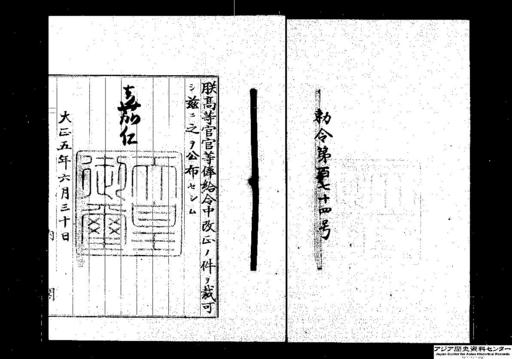 勅令第百七十四号
朕高等官官等俸給令中改正ノ件ヲ裁可
シ茲ニ之ヲ公布セシム
嘉仁
天皇御璽
大正五年六月三十日
アジア歴史資料センター
Japan Center for Asian Historical Records